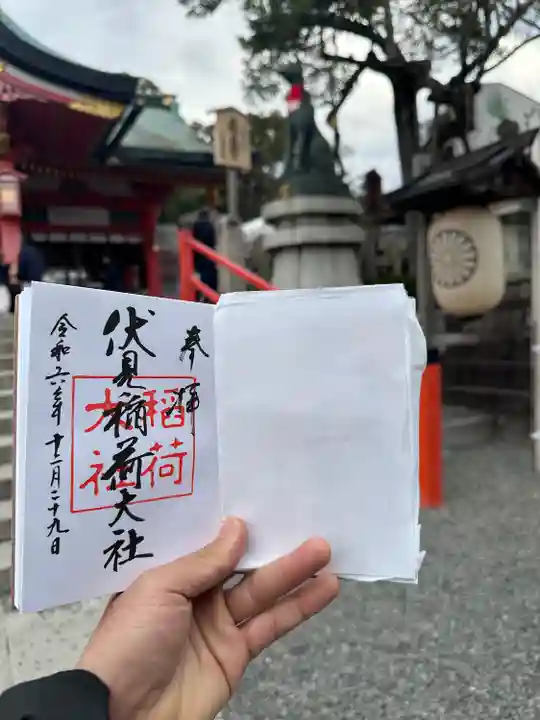 奉拝
伏見稲荷大社
稲荷
大社
令和六年十一月二十九日